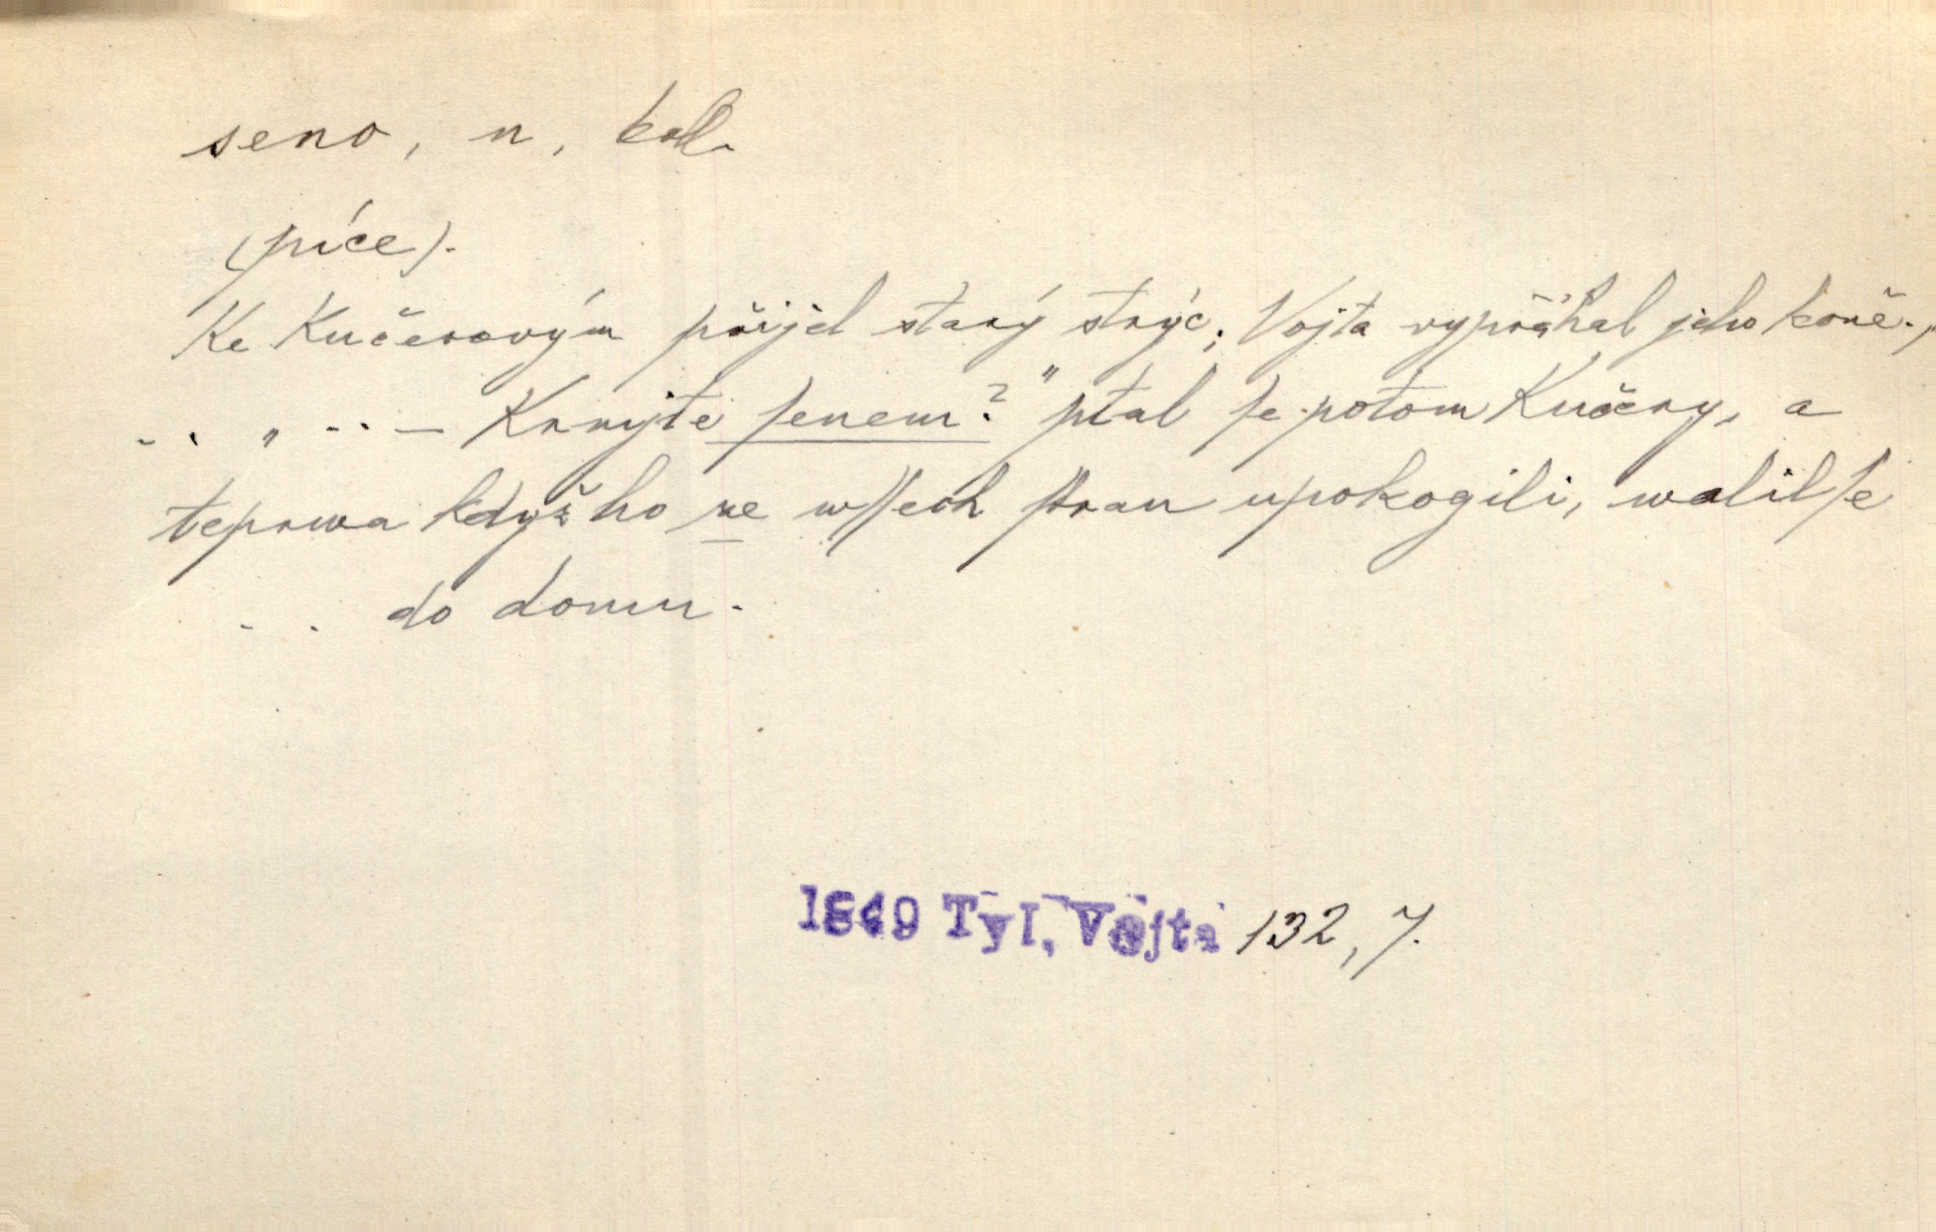 seno, n, koll.
(píce).
Ke Kučerovým přijel starý strýc; Vojta vypřáhal jeho koně.„
. . „ . . . — Krmjte ſenem?" ptal ſe potom Kučery, a
teprwa když ho ze wſſech ſtran upokogili, walil ſe
. . do domu.
1849 Tyl, Vojta 132, 7.